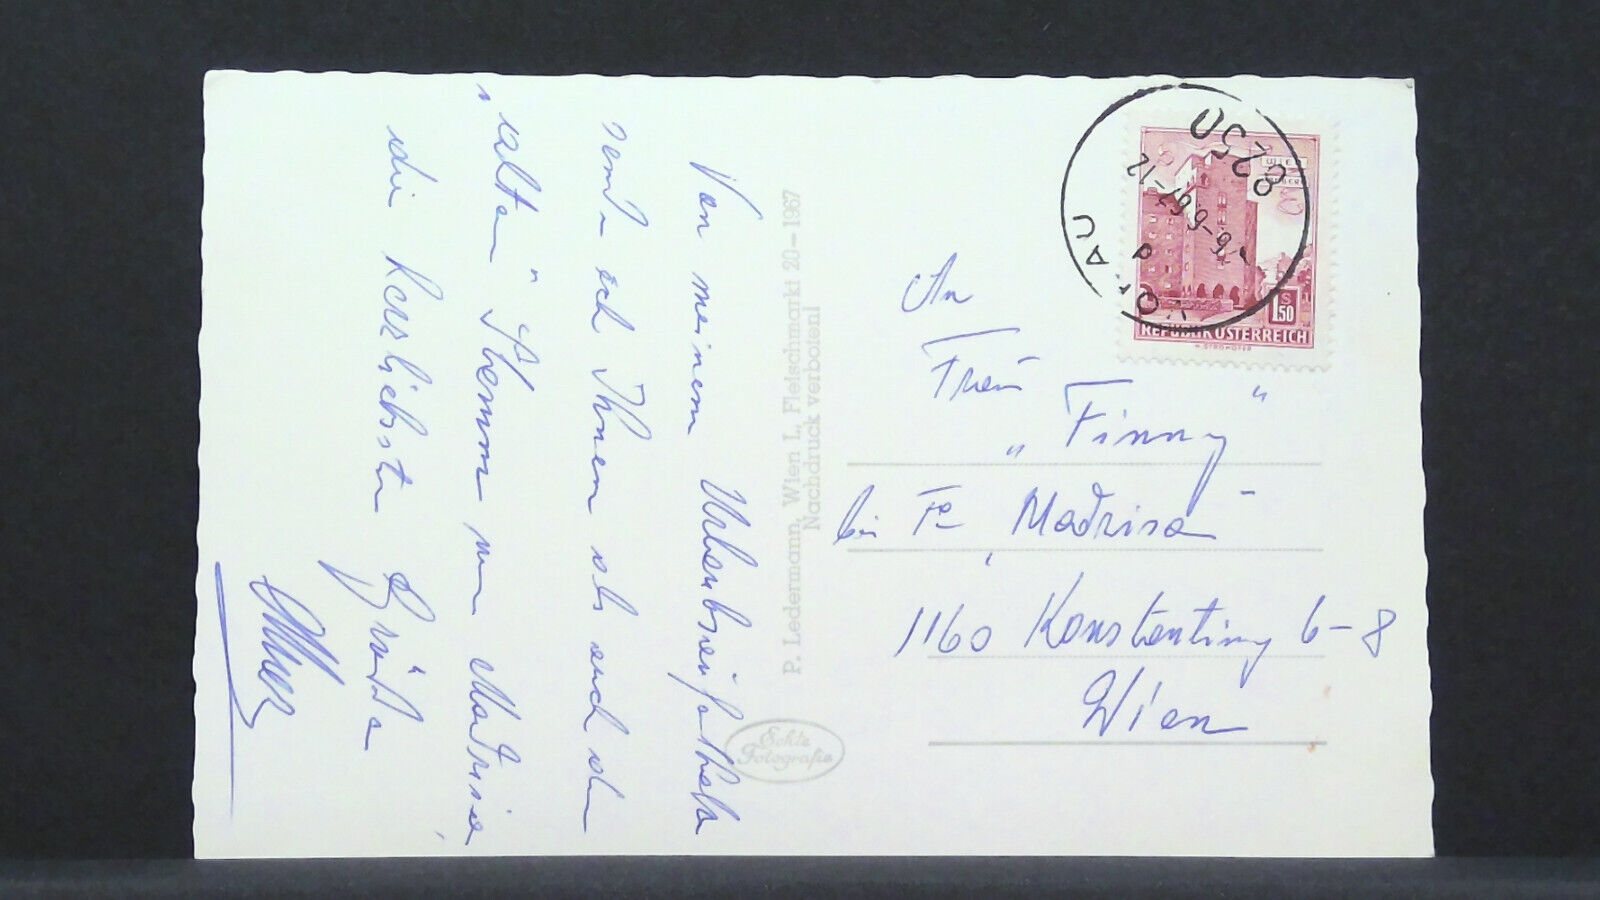 Von meinem Urlaubsaufenthalt
sende ich Ihnen als auch den
alten "Stamm" von Madrisa,
die herzlichsten Grüße
P. Ledermann, Wien I., Fleischmarkt 20–1967
Nachdruck verboten!
Echte
Fotografie
8250
-6-6 67-12
AU
a
WIEN
S
1.50
REPUBLIK ÖSTERREICH
An
Frau
"Finny"
bei Fa "Madrisa"
1160 Konstanting 6-8
Wien